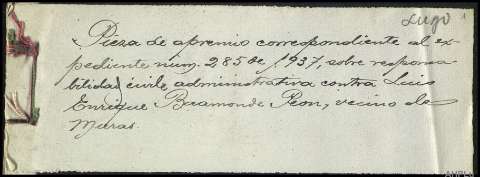 Lugo
Pieza de apremio correspondiente al ex-
pediente núm. 285 de 1937, sobre responsa
bilidad civil e administrativa contra Luis
Enrique Baamonde Peon, vecino de
Muras.